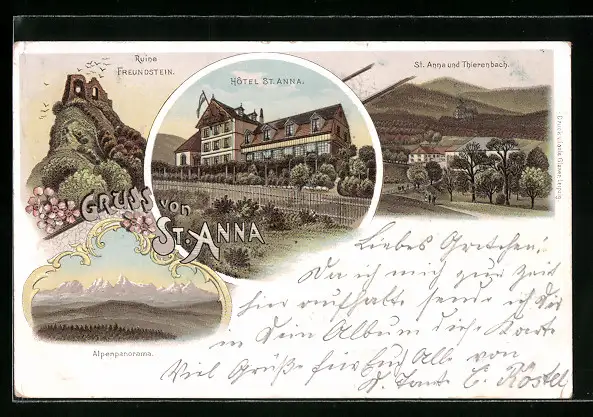 Ruine
FREUNDSTEIN.
HÔTEL ST. ANNA.
St. Anna und Thierenbach.
GRUSS von
ST. ANNA
Alpenpanorama.
Liebes Gretchen!
Da ich mich zur Zeit
hier aufhalte sende ich Dir
in Dein Album diese Karte
Viel Grüße für Euch Alle von
D. Tante E. Röstel